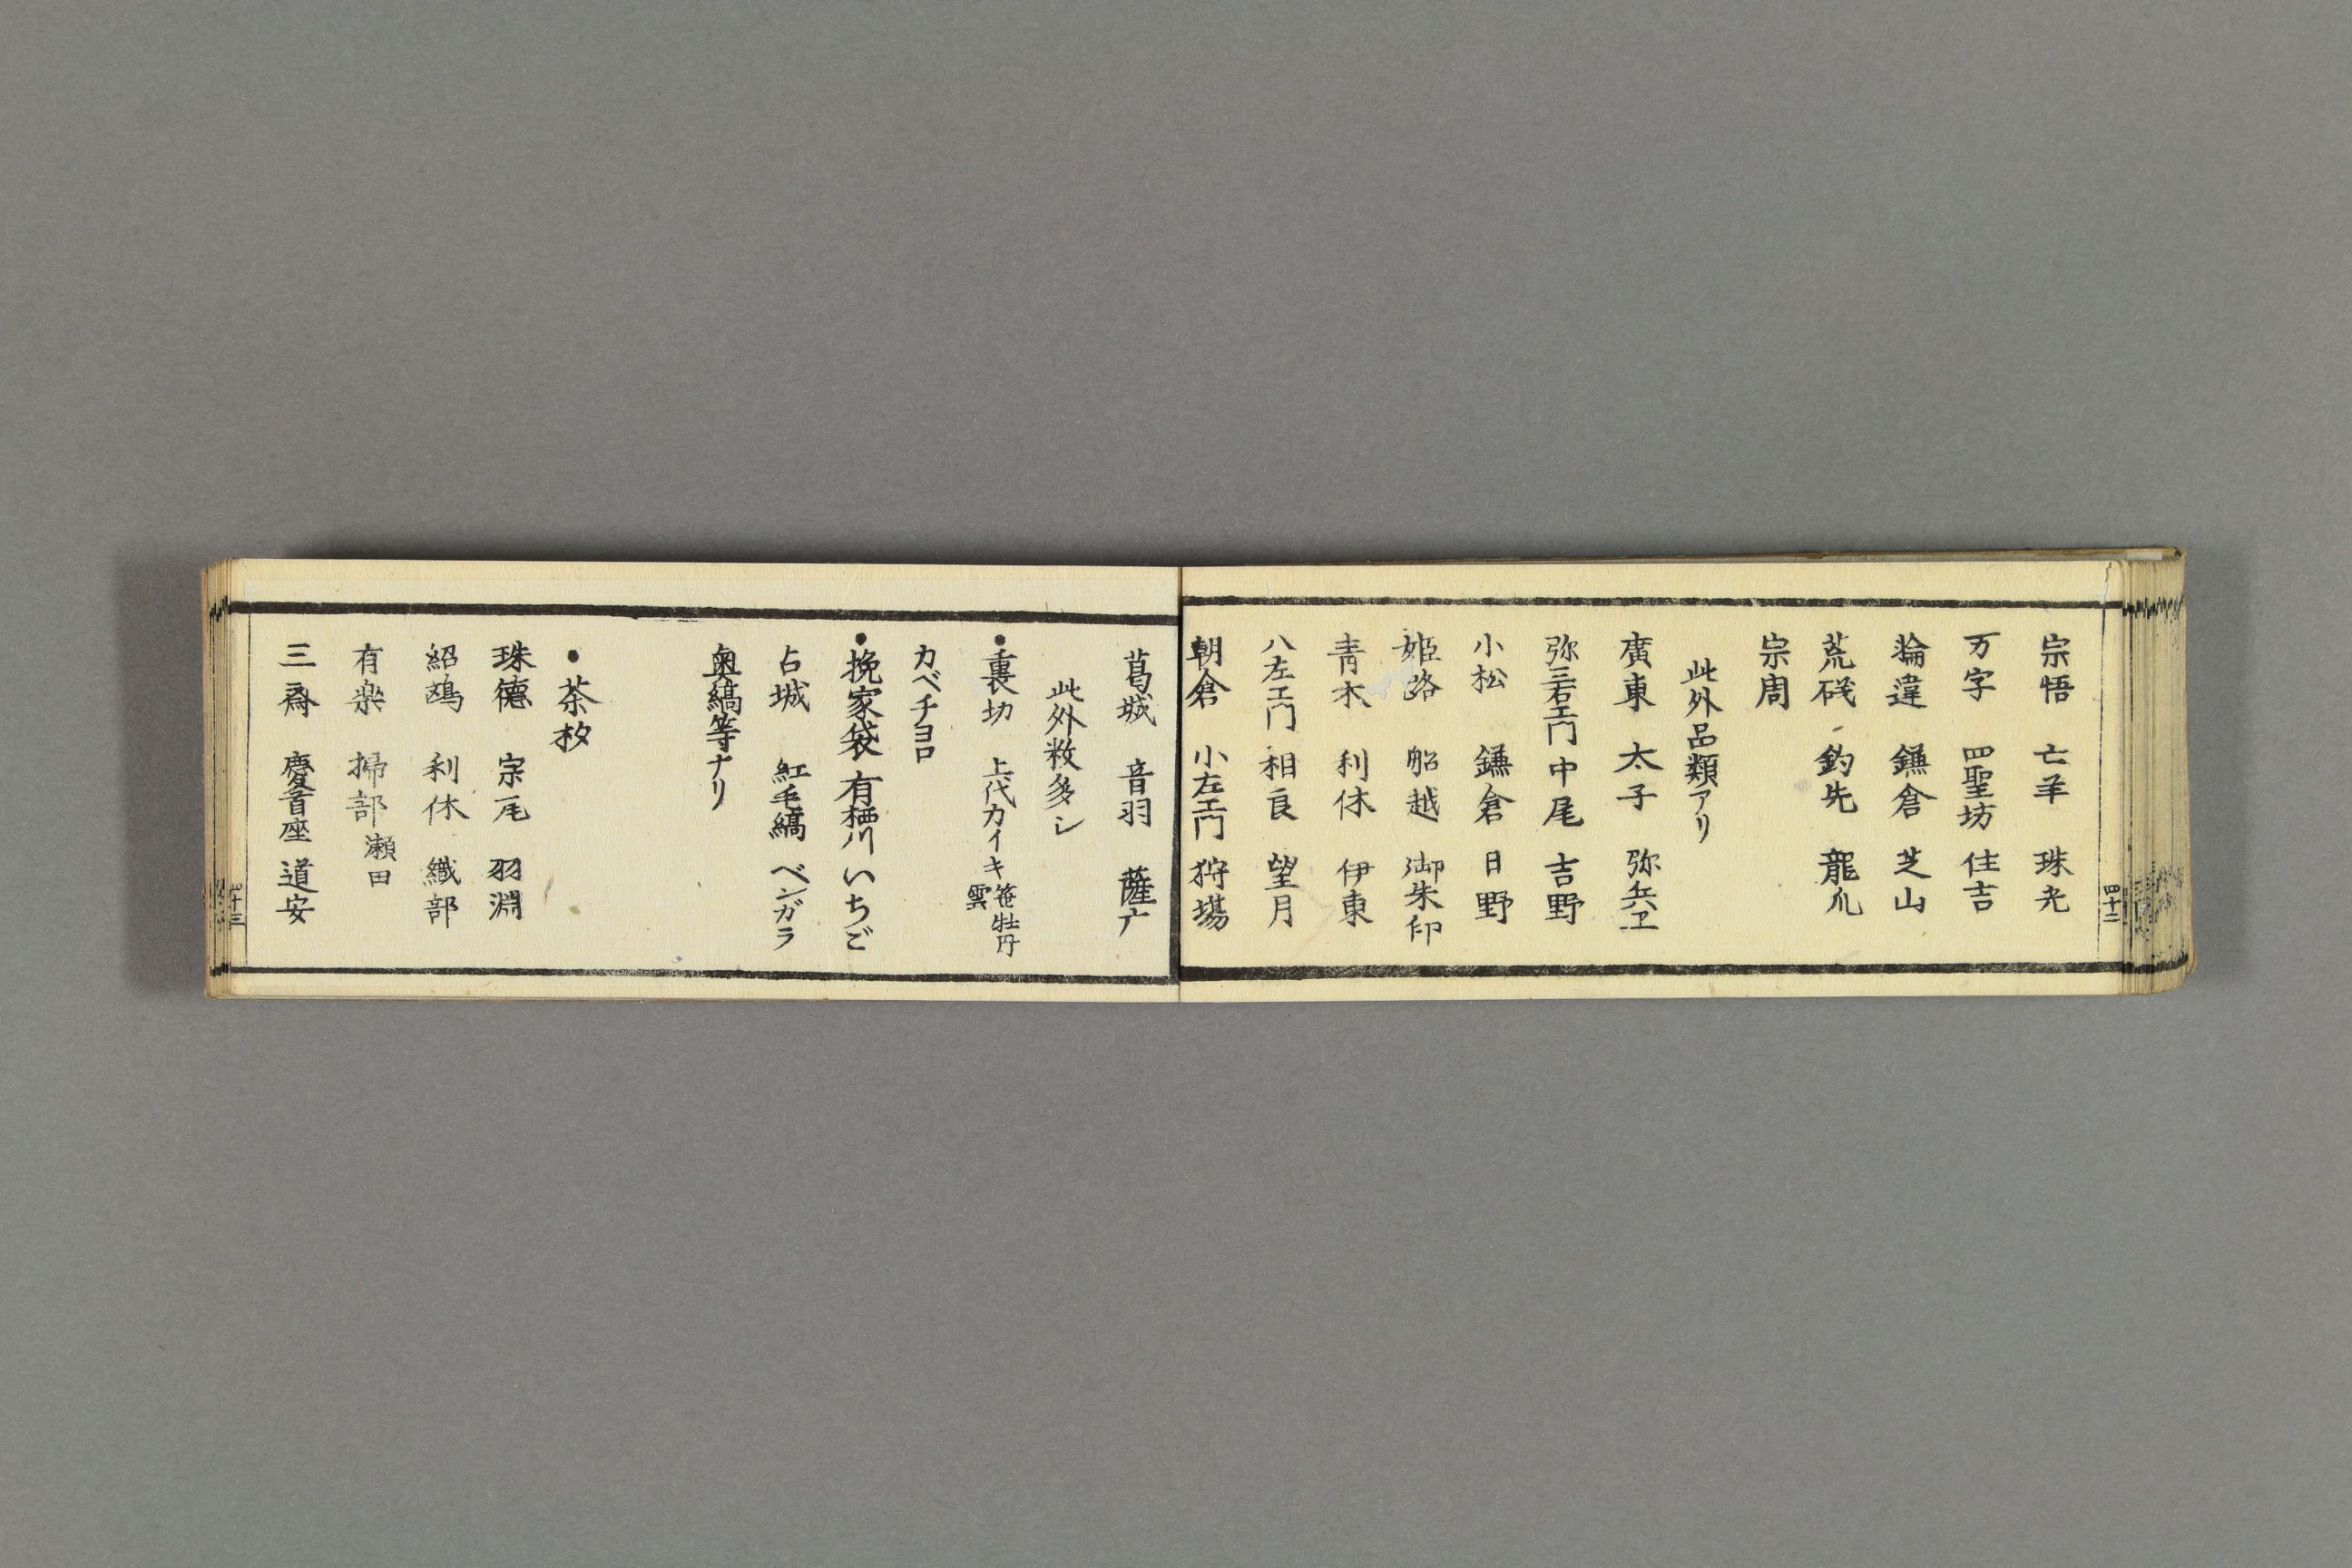 宗悟 亡羊 珠光
万字 四聖坊 住吉
輪違 鎌倉 芝山
荒磯 釣先 龍爪
宗周
此外品類アリ
廣東 太子 弥兵ヱ
弥三右エ門 中尾 吉野
小松 鎌倉 日野
姫路 船越 御朱印
青木 利休 伊東
八左エ門 相良 望月
朝倉 小左エ門 狩場
四十二
葛城 音羽 薩广
此外数多シ
●裏切 上代カイキ 笹牡丹
雲
カベチヨロ
●挽家袋 有栖川 いちご
占城 紅毛縞 ベンガラ
奥縞等ナリ
●茶杓
珠德 宗尾 羽淵
紹鴎 利休 織部
有楽 掃部 瀬田
三斎 慶首座 道安
四十三